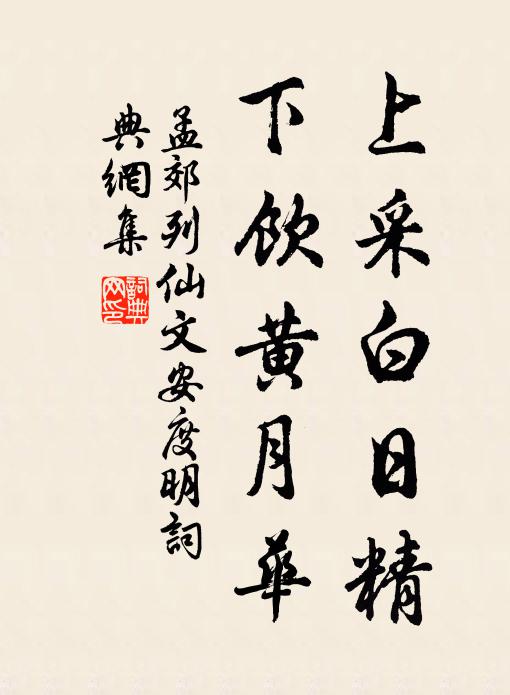 上采白日精
下飲黄月華
孟郊列仙文安度明詞
典網集
詞典
网印